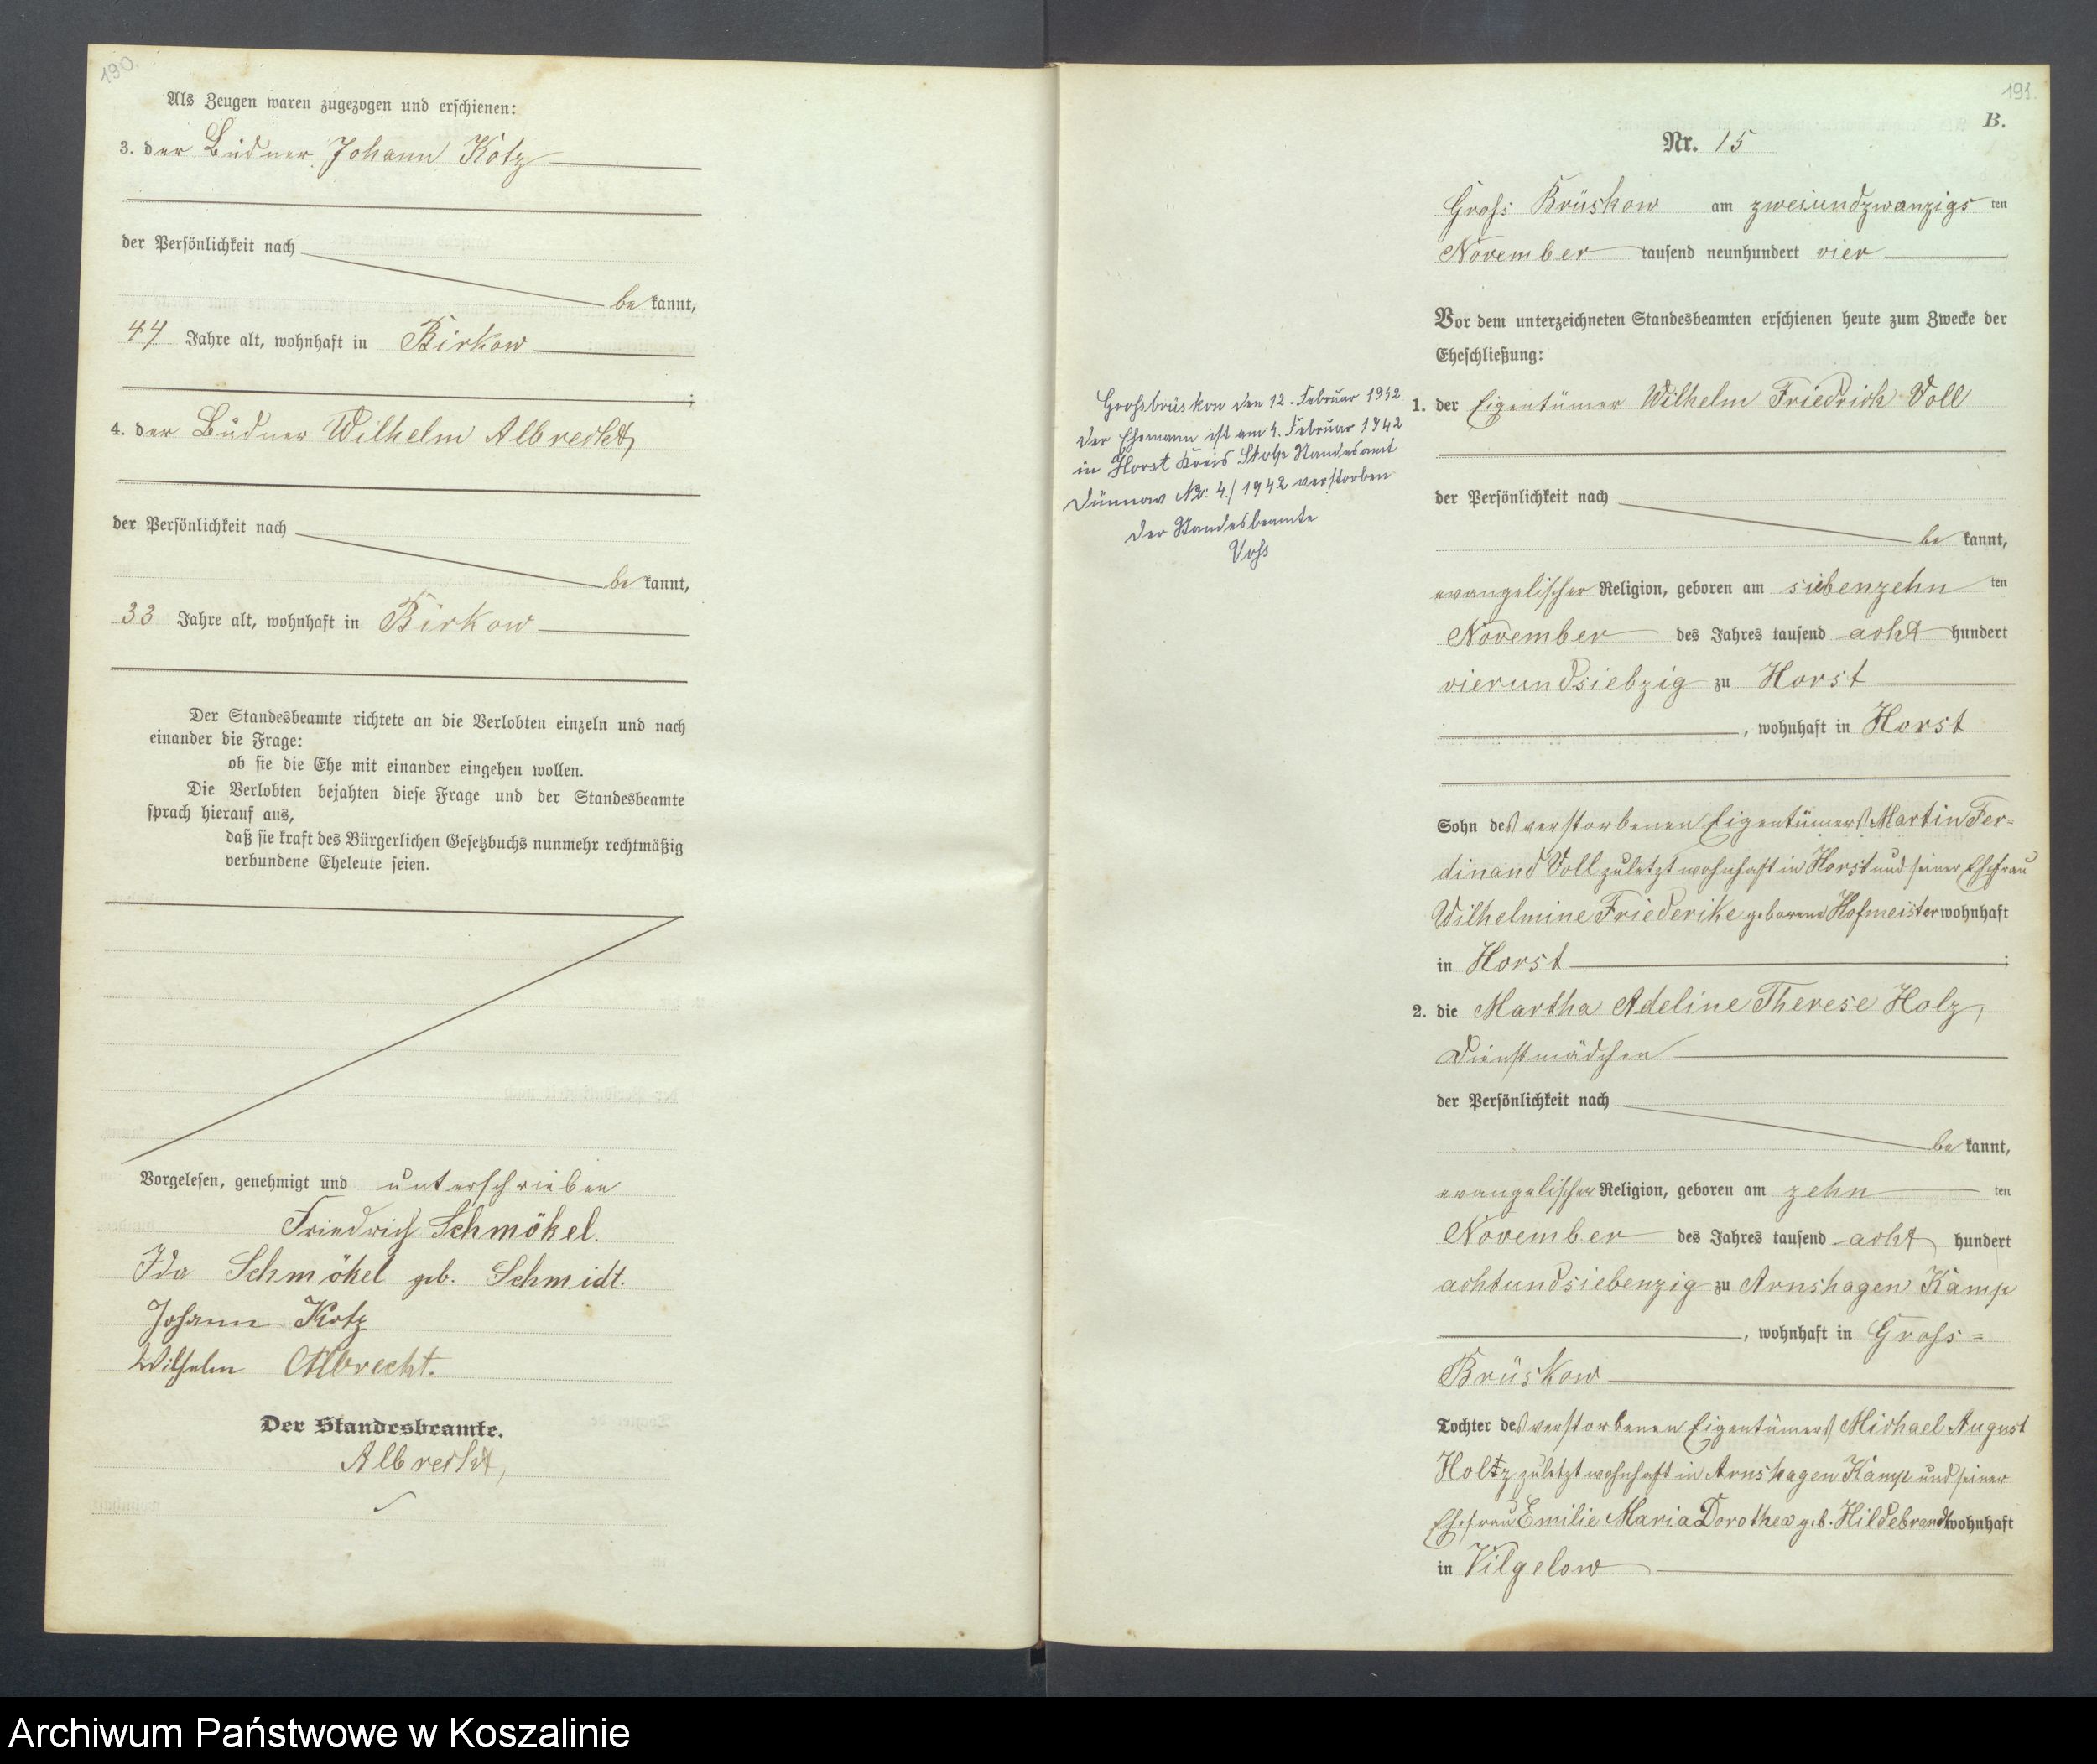 190.
Als Zeugen waren zugezogen und erschienen:
3. der Büdner Johann Kotz
der Persönlichkeit nach
be kannt,
44 Jahre alt, wohnhaft in Birkow
;
4. der Büdner Wilhelm Albrecht,
der Persönlichkeit nach
be kannt,
33 Jahre alt, wohnhaft in Birkow
Der Standesbeamte richtete an die Verlobten einzeln und nach
einander die Frage:
ob sie die Ehe mit einander eingehen wollen.
Die Verlobten bejahten diese Frage und der Standesbeamte
sprach hierauf aus,
daß sie kraft des Bürgerlichen Gesetzbuchs nunmehr rechtmäßig
verbundene Eheleute seien.
Vorgelesen, genehmigt und unterschrieben
Friedrich Schmökel.
Ida Schmökel geb. Schmidt.
Johann Kotz
Wilhelm Albrecht.
Der Standesbeamte.
Albrecht,
191.
B.
Nr. 15
Groß Brüskow am zweiundzwanzigs ten
November tausend neunhundert vier
Vor dem unterzeichneten Standesbeamten erschienen heute zum Zwecke der
Eheschließung:
1. der Eigentümer Wilhelm Friedrich Voll
der Persönlichkeit nach
be kannt,
evangelischer Religion, geboren am siebenzehn ten
November des Jahres tausend acht hundert
vierundsiebzig zu Horst
, wohnhaft in Horst
Sohn des verstorbenen Eigentümers Martin Fer=
dinand Voll zuletzt wohnhaft in Horst und seiner Ehefrau
Wilhelmine Friederike geborene Hofmeister wohnhaft
in Horst ;
2. die Martha Adeline Therese Holz,
Dienstmädchen
der Persönlichkeit nach
be kannt,
evangelischer Religion, geboren am zehn ten
November des Jahres tausend acht hundert
achtundsiebenzig zu Arnshagen Kamp
, wohnhaft in Groß=
Brüskow
Tochter des verstorbenen Eigentümers Michael August
Holtz zuletzt wohnhaft in Arnshagen Kamp und seiner
Ehefrau Emilie Maria Dorothea geb. Hildebrandt wohnhaft
in Vilgelow
Großbrüskow den 12. Februar 1942
Der Ehemann ist am 4. Februar 1942
in Horst Kreis Stolp Standesamt
Dünnow Nr. 4./1942 verstorben
Der Standesbeamte
Voß
Archiwum Państwowe w Koszalinie